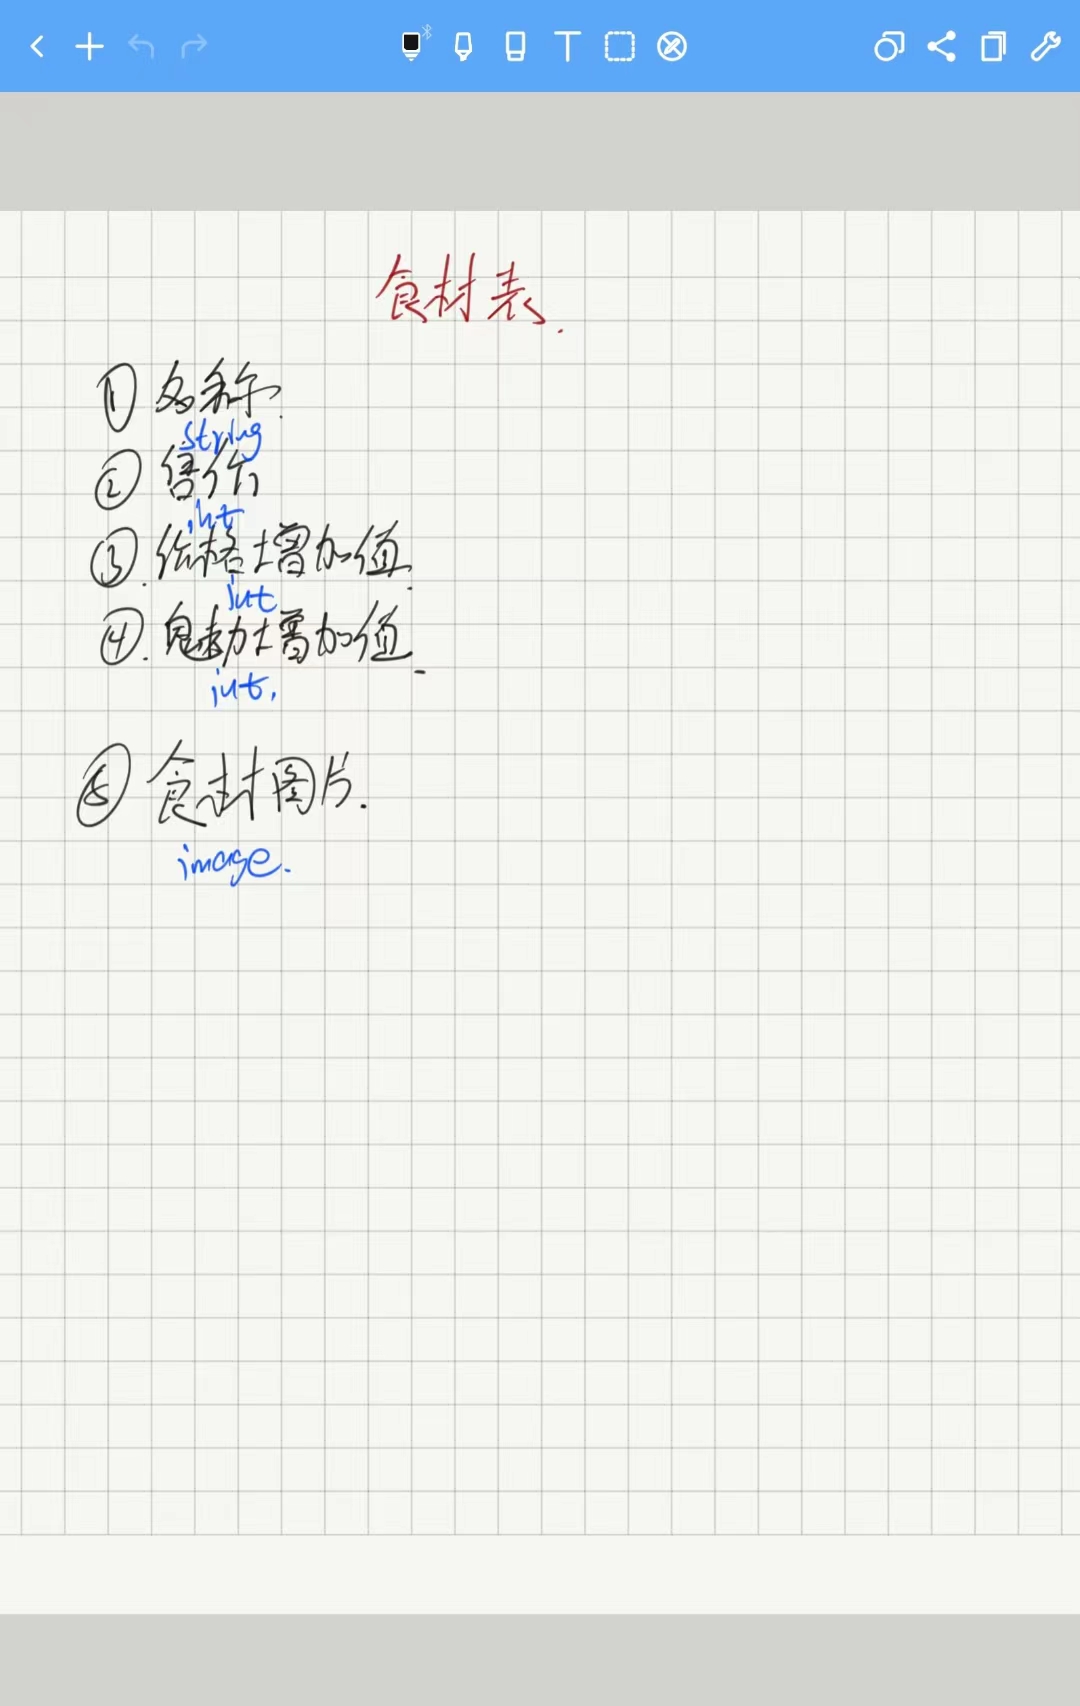 食材表.
① 名称.
string
② 售价
int
③. 价格增加值.
int
④. 魅力增加值.
int.
⑤ 食材图片.
image.